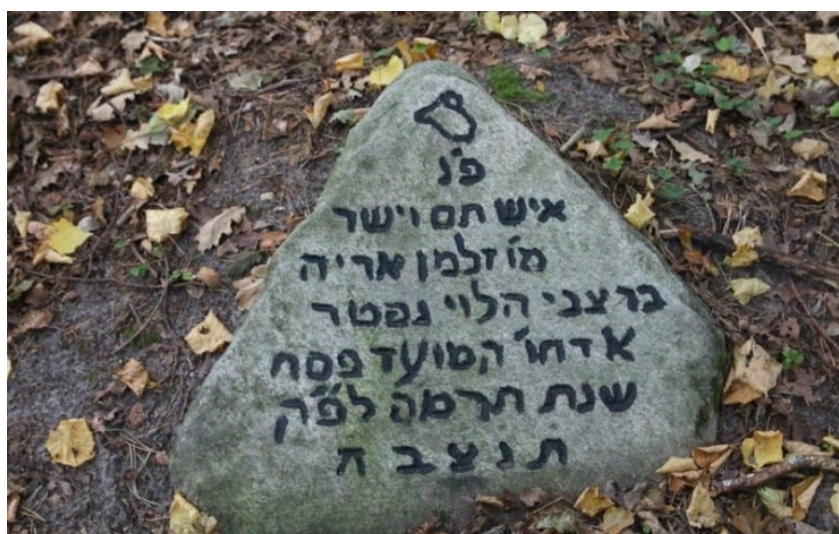 פ'נ
איש תם וישר
מו' זלמן אריה
בר צבי הלוי נפטר
א דחו' המועד פסח
שנת תרמה לפ"ק
ת נ צ ב ה